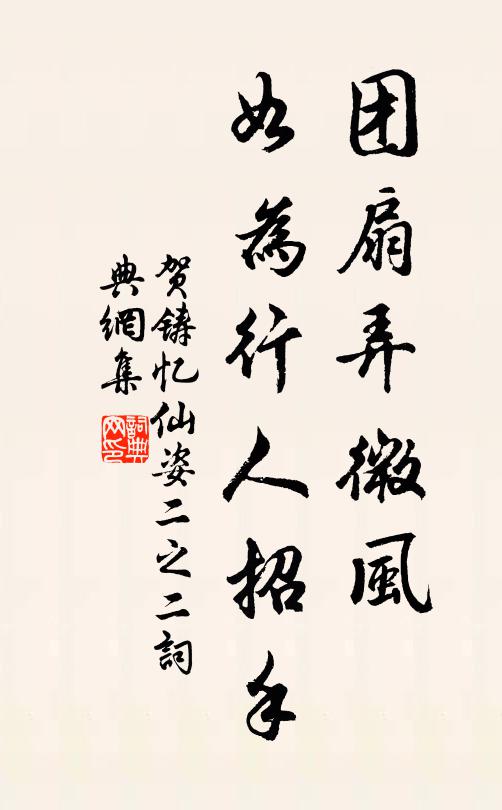 团扇弄微風
如為行人招手
贺鑄忆仙姿二之二詞
典網集
詞典网印